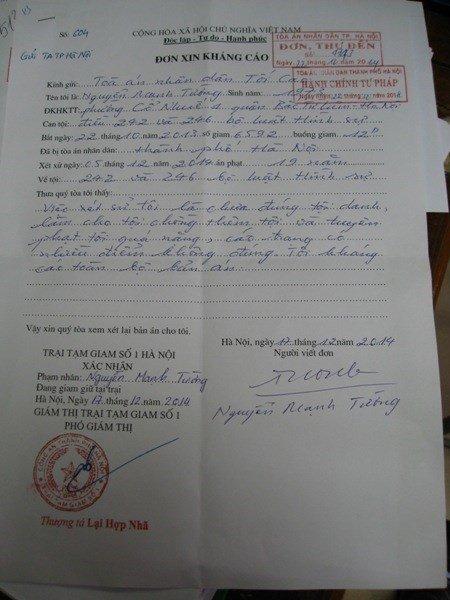 Số: 604
CỘNG HÒA XÃ HỘI CHỦ NGHĨA VIỆT NAM
Độc lập - Tự do - Hạnh phúc
Gửi TATP Hà Nội
TÒA ÁN NHÂN DÂN TP. HÀ NỘI
ĐƠN, THƯ ĐẾN
Số
Ngày
ĐƠN XIN KHÁNG CÁO
TÒA ÁN NHÂN DÂN THÀNH PHỐ HÀ NỘI
HÀNH CHÍNH TƯ PHÁP
Kính gửi: Toà án nhân dân Tối Cao
Tên tôi là: Nguyễn Mạnh Tường Sinh năm:
ĐKHKTT: phường Cổ Nhuế 1 quận Bắc Từ Liêm Hà Nội
Can tội: điều 242 và 246 bộ luật hình sự
Bắt ngày 22 tháng 10 năm 2013 số giam 6592 buồng giam 12
Đã bị tòa án nhân dân thành phố Hà Nội
Xét xử ngày 05 tháng 12 năm 2014 án phạt 19 năm
Về tội: 242 và 246 bộ luật hình sự
Thưa quý tòa tôi thấy:
Việc xét sử tôi là chưa đúng tội danh,
làm cho tôi chồng thêm tội và tuyên
phạt tôi quá nặng, cáo trạng có
nhiều điểm không đúng. Tôi kháng
cáo toàn bộ bản án
Vậy xin quý tòa xem xét lại bản án cho tôi.
Hà Nội, ngày 17 tháng 12 năm 2014
Người viết đơn
Nguyễn Mạnh Tường
TRẠI TẠM GIAM SỐ 1 HÀ NỘI
XÁC NHẬN
Phạm nhân: Nguyễn Mạnh Tường
Đang giam giữ tại trại
Hà Nội, Ngày 17 tháng 12 năm 2014
GIÁM THỊ TRẠI TẠM GIAM SỐ 1
PHÓ GIÁM THỊ
CÔNG AN THÀNH PHỐ HÀ NỘI
TRẠI TẠM GIAM SỐ 1
Thượng tá Lại Hợp Nhã